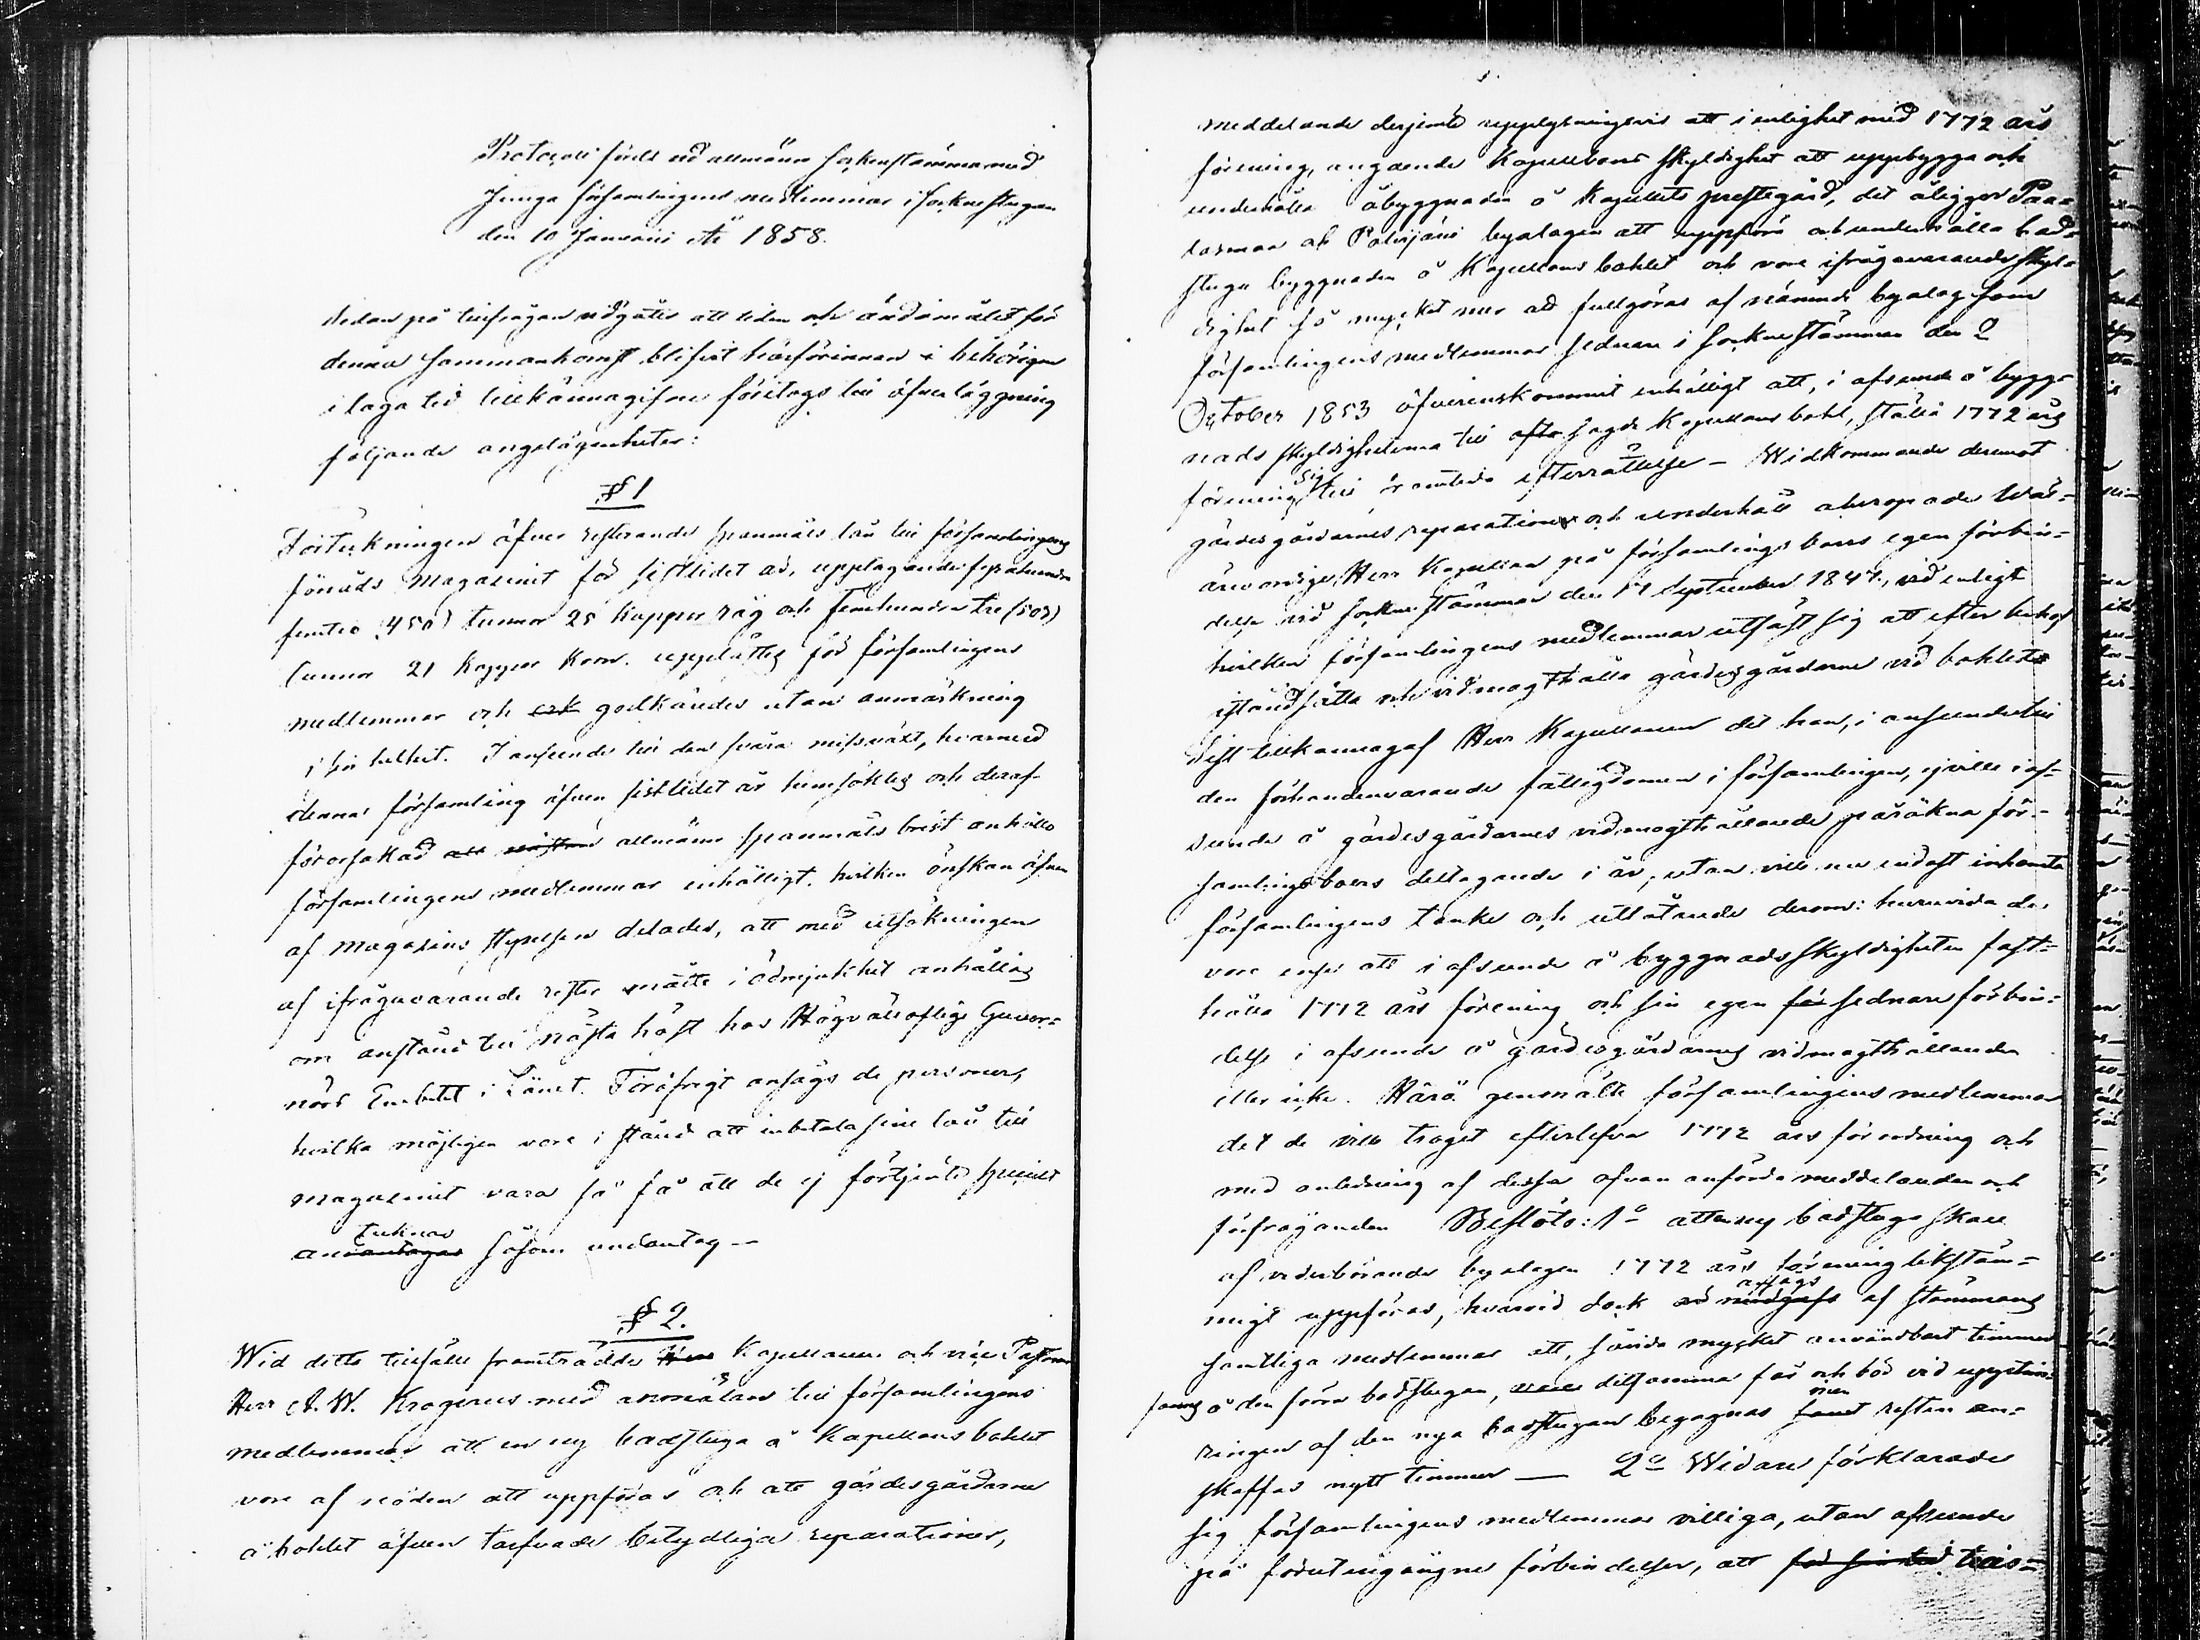 Protocoll fördt vid allmänn sockenstämma med
Jünga församlingens medlemmar i sockenstugan
den 10 Januarii År 1858.
Sedan på tillfrågan vidgåtts att tiden och ändamålet för
denna sammankomst blifvit härförinnan i behörigen
i laga tid tillkännagifne företogs till öfverläggning
följande angelägenheter:
§ 1
Förteckningen öfver resterande spannmåls lån till församlingens
förråds Magasinet för sistlidet år, upptagande fyrahundra
femtio (450) tunnor 25 kappar råg och femhundra tre (503)
tunnor 21 kappar Korn. upplästes för församlingens
medlemmar och godkändes utan anmärkning
i sin helhet. I anseende till den svåra missväxt, hvarmed
denna församling äfven sistlidet år hemsöktes och deraf
förorsakad allmänn spannmåls brist anhöllo
församlingens medlemmar enhälligt, hvilken önskan äfven
af Magasins Styrelsen delades, att med utsökningen
af ifrågavarande rester måtte i ödmjukhet anhållas
om anstånd till nästa höst hos Högvälloflige Guver=
nörs Embetet i Länet. Föröfrigt ansågs de personer,
hvilka möjligen vore i stånd att inbetala sine lån till
magasinet vara så få att de ej förtjente speciellt
antecknas såsom undantag —
§ 2.
Wid detta tillfälle framträdde Kapellanen och vice Pastorn
Herr A. W. Krogerus med anmälan till församlingens
medlemmar att en ny badstuga å Kapellans bohlet
vore af nöden att uppföras och att gärdesgårdarne
å bohlet äfven tarfvade betydliga reparationer,
meddelande derjemte upplysningsvis att i enlighet med 1772 års
förening, angående Kapellboers skyldighet att uppbygga och
underhålla åbyggnaden å Kapellets prestegård, det åligger Paa=
lasmaa och Palojärvi byalagen att uppföra och underhålla bad=
stuga byggnaden å Kapellans bohlet och vore ifrågavarande skyl=
dighet så mycket mer att fullgöras af nämnde byalag som
församlingens medlemmar sednare i sockenstämman den 2
October 1853 öfverenskommit enhälligt att, i afseende å bygg=
nads skyldigheterna till ofta sagde Kapellans bohl, ställa 1772 års
förening sig till framtida efterrättelse — Widkommande deremot
gärdesgårdarnes reparationer och underhåll åberopade Wäl=
ärevördige Herr Kapellan på församlings boers egen förbin=
delse vid sockenstämman den 19 September 1847, vid enligt
hvilken församlingens medlemmar utfäst sig att efter behof
iståndsätta och vidmagthålla gärdesgårdarne vid bohlet
Sist tillkännagaf Herr Kapellanen det han, i anseende till
den förhandenvarande fattigdomen i församlingen, ej ville i af=
seende å gärdesgårdarnes vidmagthållande påräkna för=
samlingsboers deltagande i år, utan ville nu endast inhemta
församlingens tanke och utlåtande derom: huruvida de
vore ense att i afseende å byggnadsskyldigheten fast=
hålla 1772 års förening och sin egen sednare förbin=
delse i afseende å gärdesgårdarnes vidmagthållande
eller icke. Härå genmälte församlingens medlemmar
det de ville troget efterlefva 1772 års förordning och
med anledning af dessa ofvan anförde meddelanden och
förfråganden Beslöto: 1o att en ny badstuga skall
af vederbörande byalagen 1772 års förening likstäm=
migt uppföras, hvarvid dock ansågs af stämmans
samtliga medlemmar att, såvida mycket användbart timmer
fanns å den förra badstugan, detsamma får och bör vid uppstim=
ringen af den nya badstugan begagnas men resten an=
skaffas nytt timmer — 2o Widare förklarade
sig församlingens medlemmar villiga, utan afseende
på föruteingångne förbindelser, att till=